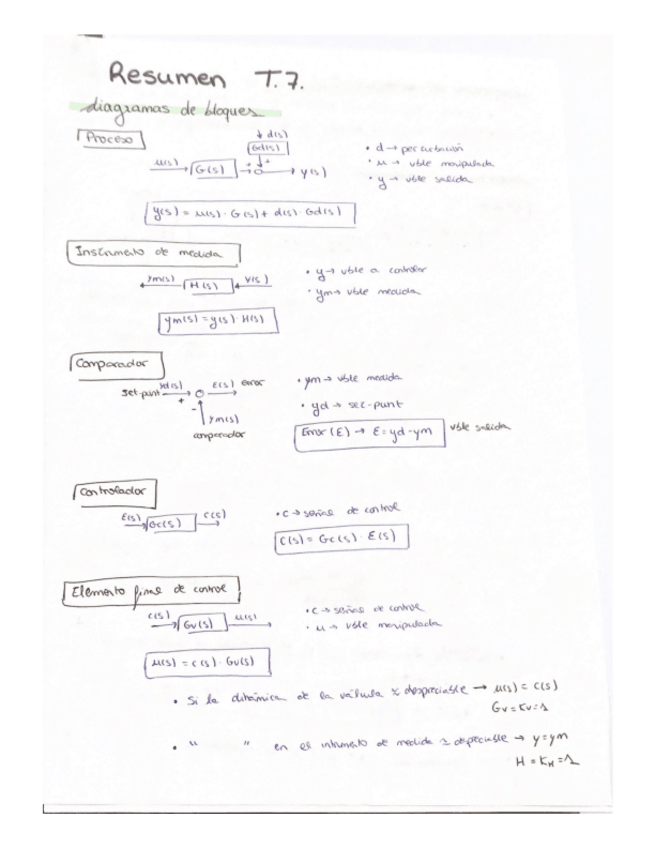 Resumen T.7.
diagramas de bloques
Proceso
↓ d(s)
Gd(s)
u(s) → G(s) → y(s)
• d → perturbación
• u → vble manipulada
• y → vble salida
y(s) = u(s) · G(s) + d(s) · Gd(s)
Instrumento de medida
ym(s) ← H(s) ← Y(s)
• y → vble a controlar
• ym → vble medida
ym(s) = y(s) · H(s)
Comparador
set-punt yd(s) → E(s) error
+
-
ym(s)
comparador
• ym → vble medida
• yd → set-punt
Error (E) → E = yd - ym vble salida
Controlador
E(s) → Gc(s) → C(s)
• C → señal de control
C(s) = Gc(s) · E(s)
Elemento final de control
C(s) → Gv(s) → u(s)
• C → señal de control
• u → vble manipulada
u(s) = c(s) · Gv(s)
• Si la dinámica de la válvula despreciable → u(s) = C(s)
Gv = Kv = 1
• " " en el intrumento de medida despreciable → y = ym
H = KH = 1